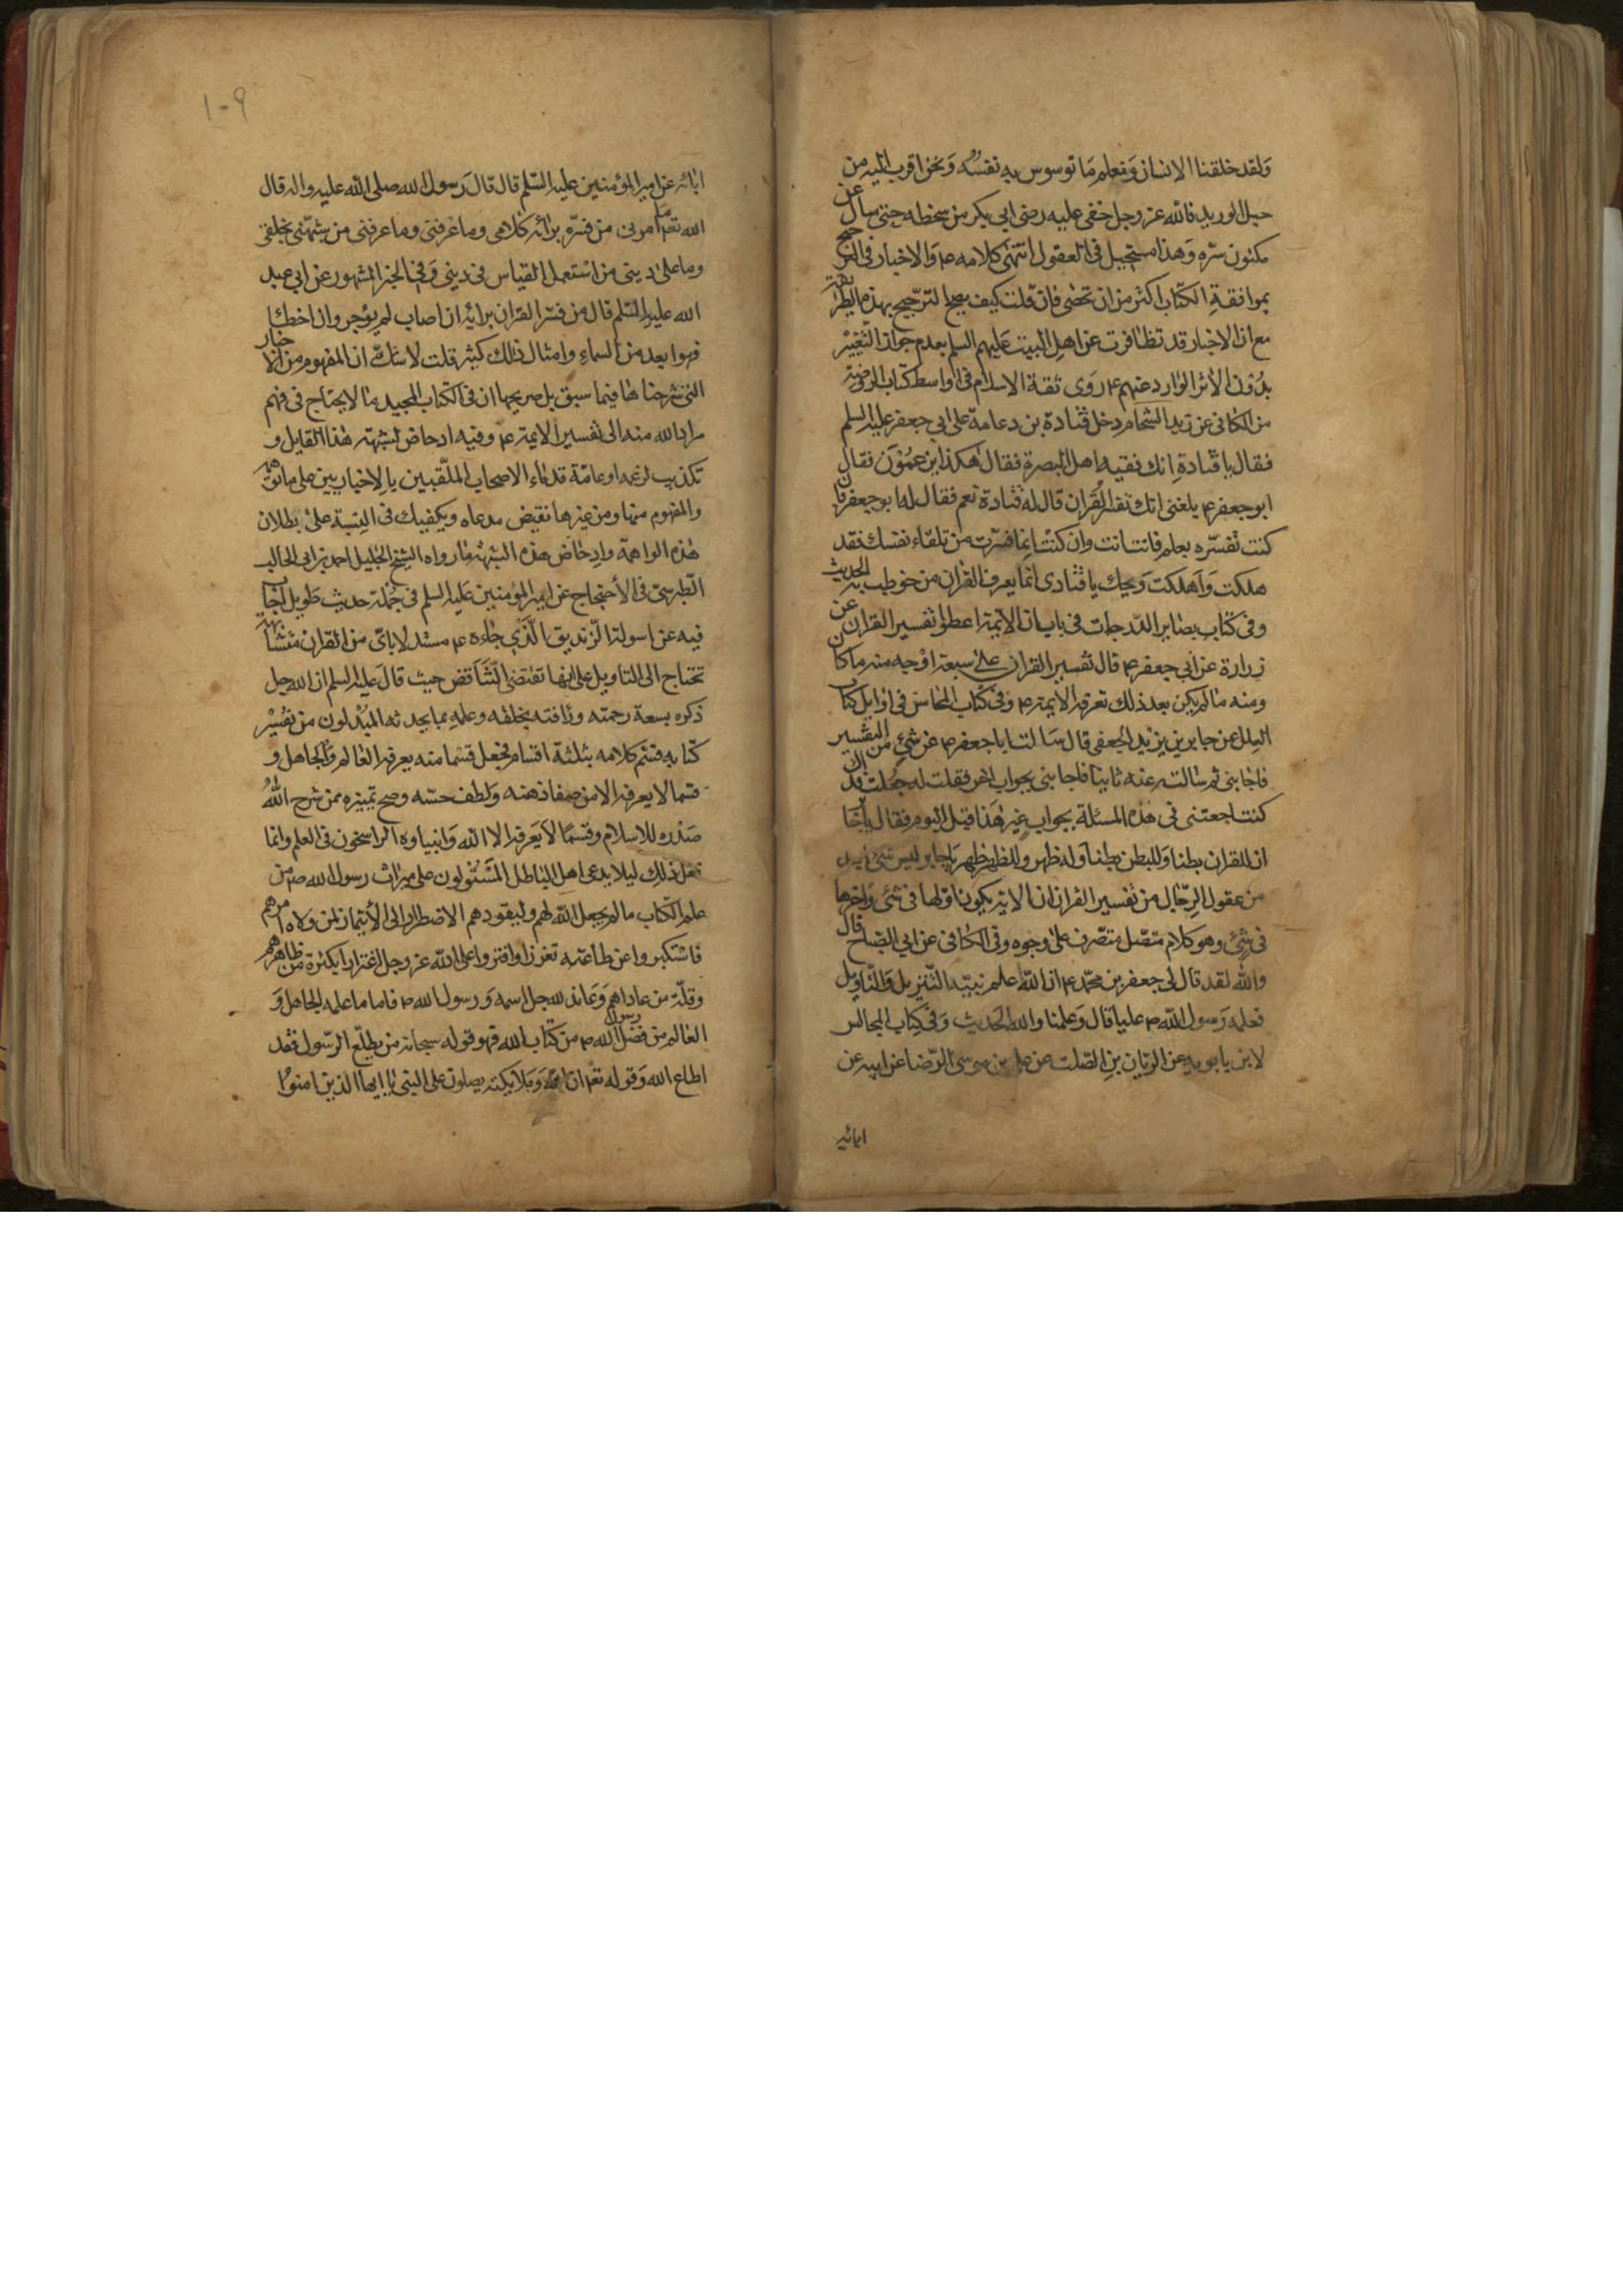 ولقد خلقنا الانسان ونعلم ما توسوس به نفسه ونحن اقرب اليه من
حبل الوريد فالله عز وجل خفى عليه رضى ابي بكر من سخطه حتى سال عن
مكنون سره وهذا مستحيل فى العقول انتهى كلامه ع والاخبار فى الترجيح
بموافقة الكتاب اكثر من ان تحصى فان قلت كيف يصح الترجيح بهذه الطريقة
مع ان الاخبار قد تظافرت عن اهل البيت عليهم السلم بعدم جواز التفسير
بدون الاثر الوارد عنهم ع روى ثقة الاسلام فى اواسط كتاب الروضة
من الكافى عن زيد الشحام دخل قتادة بن دعامة على ابي جعفر عليه السلم
فقال يا قتادة انك فقيه اهل البصرة فقال هكذا يزعمون فقال
ابو جعفر ع بلغنى انك تفسر القران قال له قتادة نعم فقال له ابو جعفر فان
كنت تفسره بعلم فانت انت وان كنت انما فسرت من تلقاء نفسك فقد
هلكت واهلكت ويحك يا قتادى انما يعرف القران من خوطب به الحديث
وفى كتاب بصاير الدرجات فى باب ان الائمة اعطوا تفسير القران عن
زرارة عن ابي جعفر ع قال تفسير القران على سبعة اوجه منه ما كان
ومنه ما لم يكن بعد ذلك تعرفه الايمة ع وفى كتاب المحاسن فى اوايل كتاب
العلل عن جابر بن يزيد الجعفى قال سالت ابا جعفر ع عن شئ من التفسير
فاجابنى ثم سالته عنه ثانيا فاجابنى بجواب اخر فقلت له جعلت فداك
كنت اجعتنى فى هذه المسئلة بجواب غير هذا قبل اليوم فقال يا جابر
ان للقران بطنا وللبطن بطنا وله ظهر وللظهر ظهر يا جابر ليس شئ ابعد
من عقول الرجال من تفسير القران ان الاية يكون اولها فى شئ واخرها
فى شئ وهو كلام متصل متصرف على وجوه وفى الكافى عن ابي الصباح قال
والله لقد قال لى جعفر بن محمد ع ان الله علم نبيه التنزيل والتاويل
فعلمه رسول الله ص عليا قال وعلمنا والله الحديث وفى كتاب المجالس
لابن بابويه عن الريان بن الصلت عن على بن موسى الرضا عن ابيه عن
ابائه
١٠٩
ابائه عن امير المؤمنين عليه السلم قال قال رسول الله صلى الله عليه واله قال
الله تعم ما امن بى من فسره برائه كلامى وما عرفنى وما عرفنى من شبهنى بخلقى
وما على دينى من استعمل القياس فى دينى وفى الخبر المشهور عن ابي عبد
الله عليه السلم قال من فسر القران برائه ان اصاب لم يؤجر وان اخطا
فهو ابعد من السماء وامثال ذلك كثير قلت لا شك ان المفهوم من الاخبار
التى شرحناها فيما سبق بل صريحها ان فى الكتاب المجيد ما لا يحتاج فى فهم
مراد الله منه الى تفسير الايمة ع وفيه ادحاض لشبهة هذا القايل و
تكذيب لزعمه او عامة قدماء الاصحاب الملقبين بالاخباريين على ما نقل
والمفهوم منها ومن غيرها نقيض مدعاه ويكفيك فى البتة على بطلان
هذه الواهمة وادحاض هذه الشبهة ما رواه الشيخ الجليل احمد بن ابى طالب
الطبرسى فى الاحتجاج عن امير المؤمنين عليه السلم فى جملة حديث طويل اجاب
فيه عن اسولة الزنديق الذى جاءه ع مستدلا باى من القران متشابهة
تحتاج الى التاويل على انها تقتضى التناقض حيث قال عليه السلم ان الله جل
ذكره بسعة رحمته ورافته بخلقه وعلمه بما يحدثه المبدلون من تغيير
كتابه قسم كلامه بثلثة اقسام فجعل قسما منه يعرفه العالم والجاهل و
قسما لا يعرفه الا من صفا ذهنه ولطف حسه وصح تميزه ممن شرح الله
صدره للاسلام وقسما لا يعرفه الا الله وانبياوه الراسخون فى العلم وانما
فعل ذلك ليلا يدعى اهل الباطل المستولون على ميراث رسول الله ص من
علم الكتاب ما لم يجعل الله لهم وليقودهم الاضطرار الى الائتمار لمن ولاه امرهم
فاستكبروا عن طاعته تعززا وافتروا على الله عز وجل اغترارا بكثرة من ظاهرهم
وقلة من عاداهم وعاند لله جل اسمه ورسول الله ص فاما ما علمه الجاهل و
العالم من فضل رسول الله ص من كتاب الله فهو قوله سبحانه من يطع الرسول فقد
اطاع الله وقوله تعم ان الله وملايكته يصلون على النبى يا ايها الذين امنوا